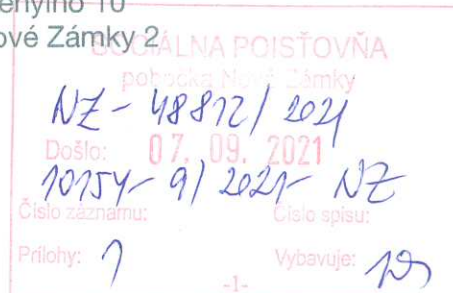 ové Zámky 2
SOCIÁLNA POISŤOVŇA
pobočka Nové Zámky
NZ - 48812/2021
Došlo: 07. 09. 2021
10154-9/2021-NZ
Číslo záznamu: Číslo spisu:
Prílohy: 1 Vybavuje:
-1-